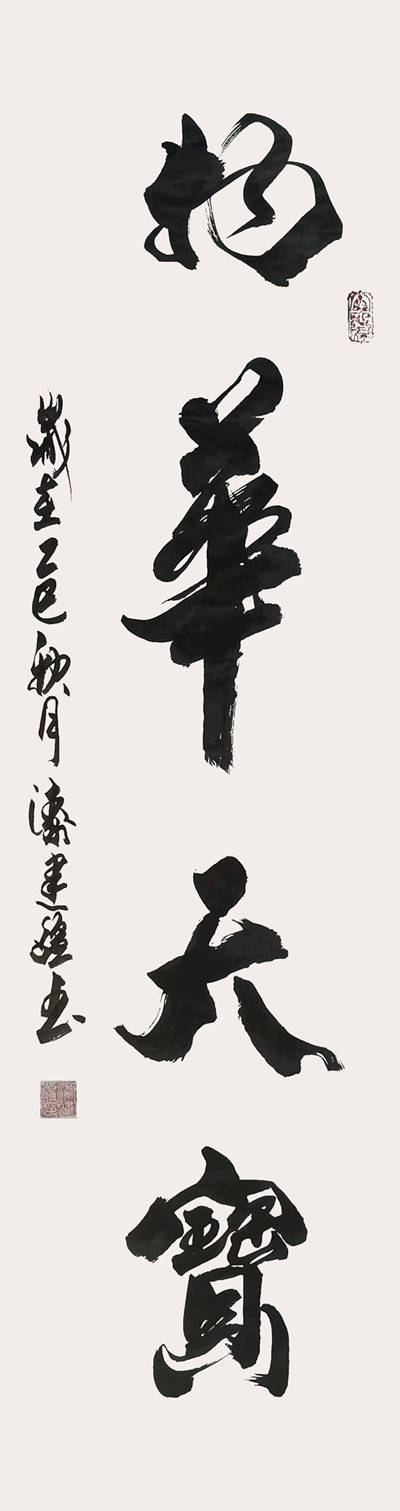 物華天寶
歲在乙巳秋月潘建強書